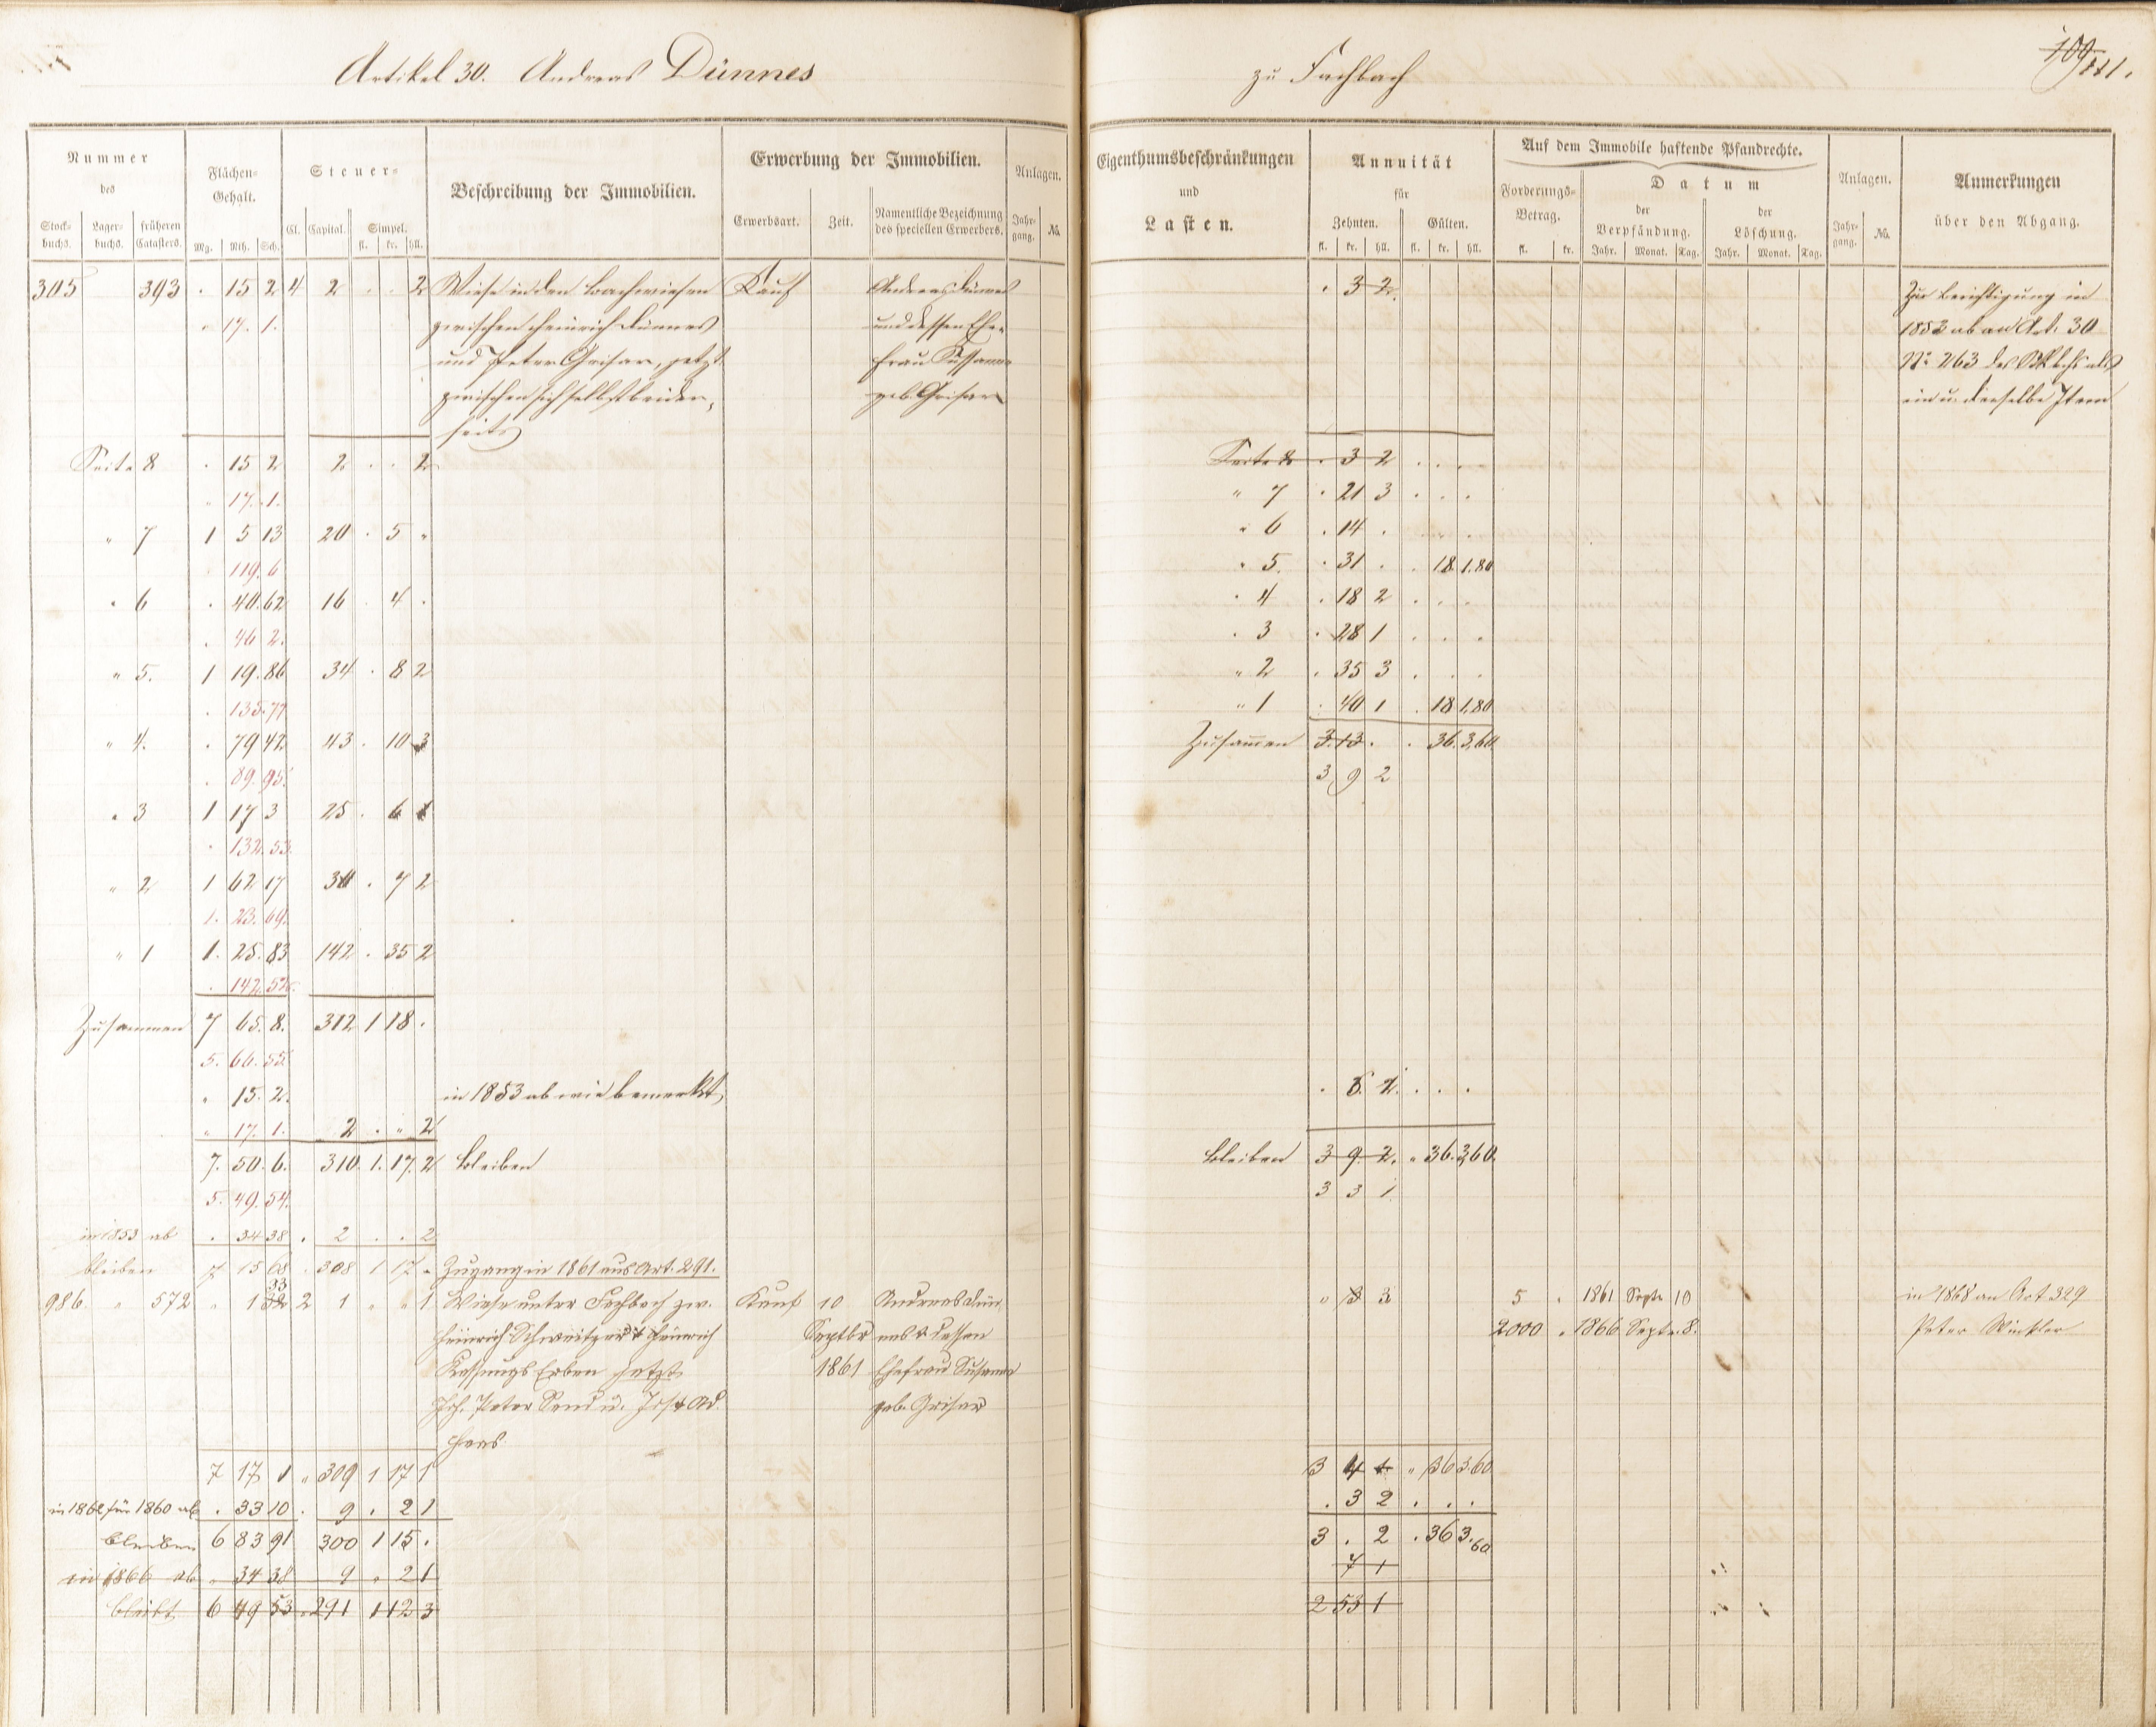 Artikel 30. Andreas Dünnes
zu Fachbach
109
111.
Nummer
des
Stock-
buchs.
Lager-
buchs.
früheren
Catasters.
Flächen-
Gehalt.
Mg. Rth. Sch.
Steuer-
Cl. Capital. Simpel.
fl. kr. hll.
Beschreibung der Immobilien.
Erwerbung der Immobilien.
Erwerbsart. Zeit. Namentliche Bezeichnung
des speciellen Erwerbers.
Anlagen.
Jahr-
gang. №.
Eigenthumsbeschränkungen
und
Lasten.
Annuität
für
Zehnten. Gülten.
fl. kr. hll. fl. kr. hll.
Auf dem Immobile haftende Pfandrechte.
Forderungs-
Betrag.
fl. kr.
Datum
der
Verpfändung.
Jahr. Monat. Tag.
der
Löschung.
Jahr. Monat. Tag.
Anlagen.
Jahr-
gang. №.
Anmerkungen
über den Abgang.
305 393 . 15 2 4 2 . . 2 Wiese in den Bachwiesen Kauf Andreas Dünnes
" 17. 1. zwischen Heinrich Dünnes und dessen Ehe-
und Peter Grisar, jetzt frau Susanna
zwischen sich selbst beider- geb. Grisar
seits
Seite 8 . 15 2 2 . . 2
" 17. 1.
" 7 1 5 13 20 . 5 "
. 119. 6
" 6 . 40.62 16 . 4 .
. 46 2.
" 5. 1 19.86 34 . 8 2
. 135.77
" 4. . 79 47 43 . 10 3
. 89. 95.
" 3 1 17 3 25 . 6 1
. 132. 53.
" 2 1 62 17 30 . 7 2
1. 23. 69.
" 1 1. 25. 83 142 . 35 2
. 142.52.
Zusammen 7 65. 8. 312 1 18 .
5. 66. 55.
" 15. 2. in 1853 ab wie bemerkt,
" 17. 1. 2 . " 2
7. 50. 6. 310 1. 17. 2 bleiben
5. 49. 54.
in 1853 ab . 34 38 . 2 . . 2
bleiben 7 15 68 . 308 1 17 " Zugang in 1861 aus Art. 291.
33
986. " 572 " 1 32 2 1 " " 1 Wiese unter Fachbach zw. Kauf 10 Andreas Dün
Heinrich Schweitzer & Heinrich Septbr nes & dessen
Erben jetzt 1861 Ehefrau Susanna
Joh. Peter u. Jost Ad. geb. Grisar
Haas
7 17 1 " 309 1 17 1
in 1862 für 1860 ab . 33 10 . 9 . 2 1
bleiben 6 83 91 300 1 15 .
in 1866 ab " 34 38 9 " 2 1
bleibt 6 49 53 . 291 1 12 3
. 3 2.
Seite 8 . 3 2 . . .
" 7 . 21 3 . . .
" 6 . 14 . . .
" 5. . 31 . . 18 1.80
" 4 . 18 2 . . .
" 3 . 28 1 . . .
" 2 . 35 3 . . .
" 1 . 40 1 . 18 1,80
Zusammen 3. 13. . . 36. 3,60
3 9 2
bleiben 3 9 2. " 36. 3,60.
3 3 1
" 3 3
5 . 1861 Septr 10
2000 " 1866 Septr. 8.
3 4 1 " 36 3.60
. 3 2 . . .
3 . 2 . 36 3.60
7 1
2 53 1
Zur Berichtigung in
1853 ab an Art. 30
№ 263 des als
ein u. derselbe Item
in 1868 an Art 329
Peter Winkler